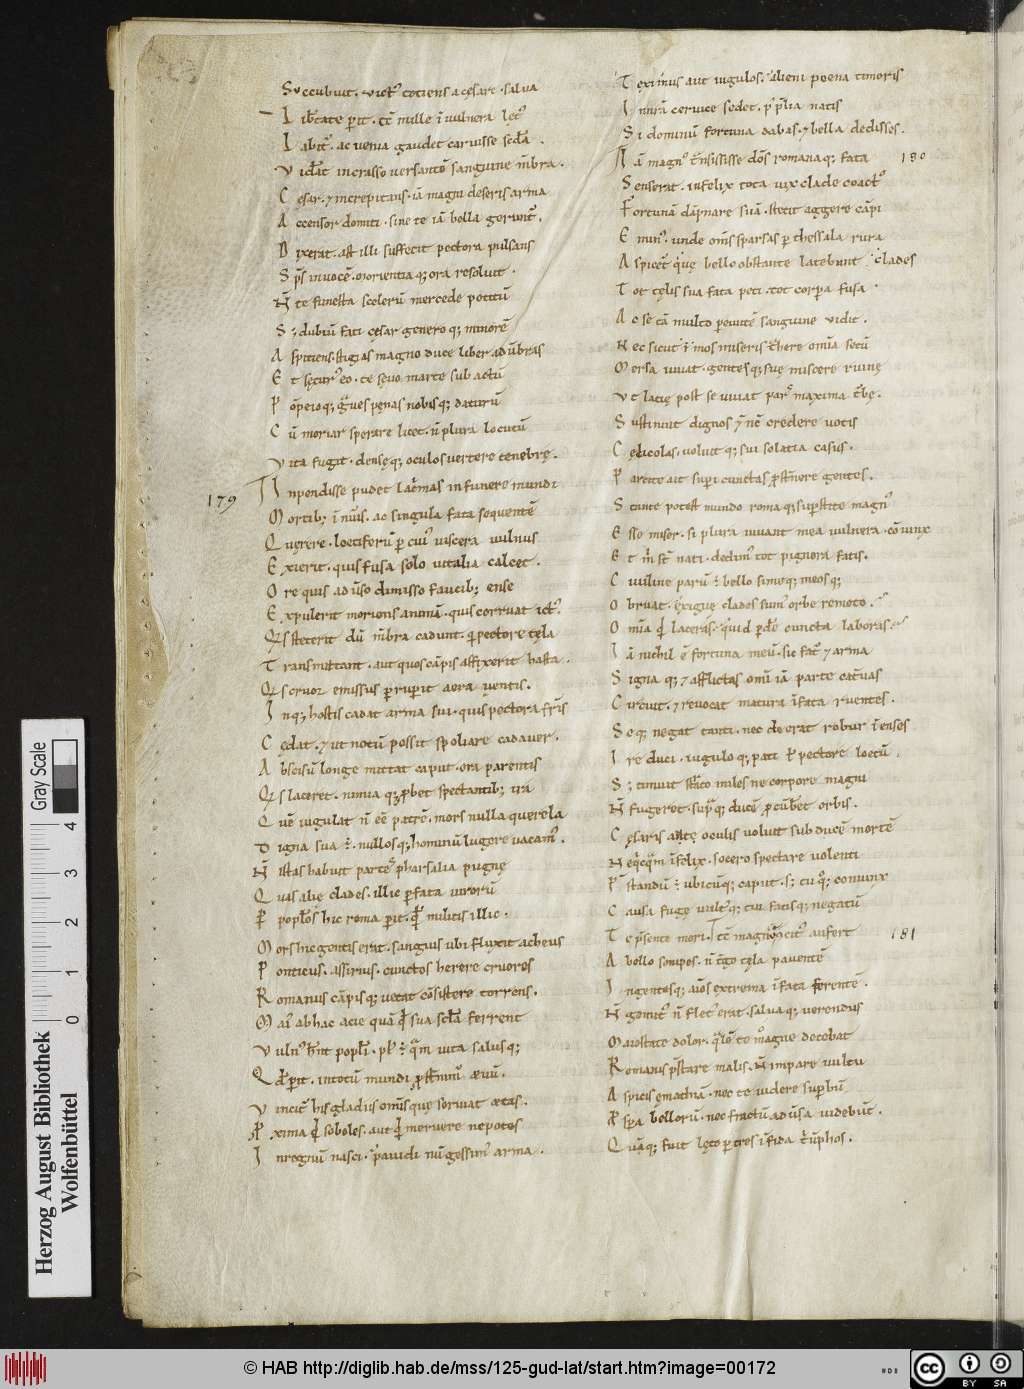 Succubuit. vict᾽ totiens a cęsare. salva
Lib͞tate perit. t͞c mille ī vulnera lęt᾽
Labit᾽. ac venia gaudet caruisse sc͞da.
Vid͞at in crasso versantem sanguine m͞bra.
Cęsar. & increpitans. iā magni deseris arma
Accensor domiti. sine te iā bella gerunt᾽.
Dixerat. ast illi suffecit pectora pulsans
Sp͞s in vocē. morientiaq; ora resoluit.
N̄ te funesta scelerū mercede potitū
S; dubiū fati cęsar generoq; minorē
Aspitiens. stigias magno duce liber ad ūbras
Et sęcur᾽ eo. te sęuo marte sub actū
Pōpeioq; g͛ves pęnas nobisq; daturū
Cū moriar sperare licet. n̄ plura locutū
Vita fugit. densęq; oculos vertere tenebrę.
179 Inpendisse pudet lac͛mas in funere mundi
Mortib; īnu͛is. ac singula fata sequentē
Quęrere. loetiferū p cui᾽ viscera vulnus
Exierit. quis fusa solo vitalia calcet.
Ore quis aduīso dimisso faucib; ense
Expulerit moriens animā. quis corruat ict᾽.
Q͛s steterit dū m̄bra cadunt. q͛ pectore tęla
Transmittant. aut quos cāpis affixerit hasta.
Q͛s cruor emissus pruperit aera venis.
Inq; hostis cadat arma sui. quis pectora fr͞is
Cędat. & ut notū possit spoliare cadauer.
Abscisū longe mittat caput. ora parentis
Q͛s laceret. nimia q; pbet spectantib; ira
Quē iugulat n̄ e͞e patrē. mors nulla querela
Digna sua ē. nullosq; hominū lugere vacam᾽.
N̄ istas habuit partes pharsalia pugnę
Quas alię clades. illic p fata virorū
P poplōs hic roma perit. q͞d militis illic.
Mors hic gentis erat. sanguis ubi fluxit acheus
Ponticus. assirius. cunctos herere cruores
Romanus cāpisq; vetat cōsistere torrens.
Mai᾽ ab hac acie quā q͞d sua sc͞la ferrent
Vuln᾽ h͞nt popli. pl᾽ ē q͞m vita salusq;
Q͞d perit. intotū mundi p̄stnim᾽ ævū.
Vincit᾽ his gladiis om͞is quę seruiet ætas.
Pxima q͞d soboles. aut q͞d meruere nepotes
In regnū nasci. pauidi nū gessim᾽ arma.
Teximus aut iugulos. alieni poena timoris
In nr͞a ceruice sedet. p᾽ p͞lia natis
Si dominū fortuna dabas. & bella dedisses.
Iā magn᾽ t͞nsisisse d͞os romanaq; fata 180
Senserat. infelix tota vix clade coact᾽
Fortunā dāpnare suā. stetit aggere cāpi
Emin᾽. unde om͞s sparsas p thessala rura
Aspicet᾽ q͛uę bello obstante latebunt clades
Tot tęlis sua fata peti. tot corpa fusa.
Ac se tā multo peuntē sanguine vidit.
Nec sicut ē mos miseris t͞here omīa secū
Mersa iuuat. gentesq; suę miscere ruinę
Vt latię post se viuat pars maxima t͞bę.
Sustinuit dignos ē n͞c credere votis
Cęlicolas. voluitq; sui solatia casus.
Parcite ait supi cunctas p̄st͞nere gentes.
Stante potest mundo romaq; supstite magn᾽
Esse miser. si plura iuuant mea vulnera. cōiunx
Et m͛ s͞t nati. dedim᾽ tot pignora fatis.
Ciuiline parū ē bello simeq; meosq;
Obruat. exiguę clades sum᾽ orbe remoto.
Om͞ia q͞d laceras. quid pd͛e cuncta laboras.
Iā nichil ē fortuna meū. sic fat᾽ & arma
Signaq; & afflictas omī iā parte cat͛uas
Circuit. & reuocat matura ī fata ruentes.
Seq; negat tanti. nec deerat robur ī enses
Ire duci. iugulo q; pati ul pectore loetū.
S; timuit st͛to miles ne corpore magni
N̄ fugeret. supq; ducē p cūb͛et orbis.
Cęsaris aut ę oculis voluit subducē mortē
Neq͛cq͞m ī felix. socero spectare volenti
P̄standū ē ubicūq; caput. s; tu q;᾽ coniunx
Causa fugę vult᾽q; tui fatisq; negatū
Te p̄sente mori. t͞c magnū cit᾽ aufert 181
A bello sonipes. n̄ t͛go tęla pauentē
Ingentesq; aīos extrema ī fata ferentē.
N̄ gemit᾽ n̄ flet᾽ erat. saluaq; verendus
Maiestate dolor. q͞lē te magne decebat
Romanis p̄stare malis. n̄ impare vultu
Aspicis ęmathiā. nec te videre supbū
Pspa bellorū. nec fractū aduīsa videbūt.
Quāq; fuit lęto p tres ī fida t͛ūphos.
Gray Scale
0 1 2 3 4
Herzog August Bibliothek
Wolfenbüttel
© HAB http://diglib.hab.de/mss/125-gud-lat/start.htm?image=00172
cc BY SA